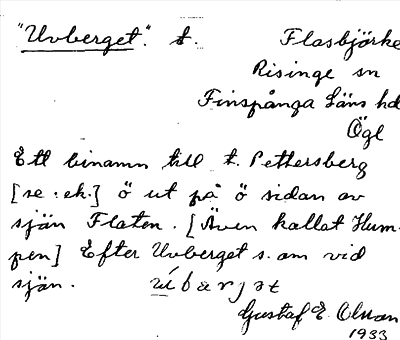 "Uvberget". t. Flasbjörke
Risinge sn
Finspånga Läns hd
Ögl
Ett binamn till t. Pettersberg
[se : ek.] ö ut på ö sidan av
sjön Flaten. [Även kallat Hum-
pen] Efter Uvberget s. om vid
sjön. úbærjət
Gustaf E. Olsson
1933